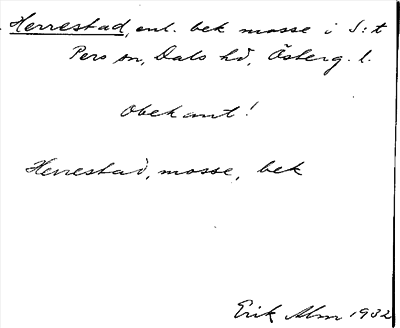 Herrestad, enl. bek mosse i S:t
Pers sn, Dals hd, Österg. l.
Obekant!
Herrestad, mosse, bek
Erik Alm 1932